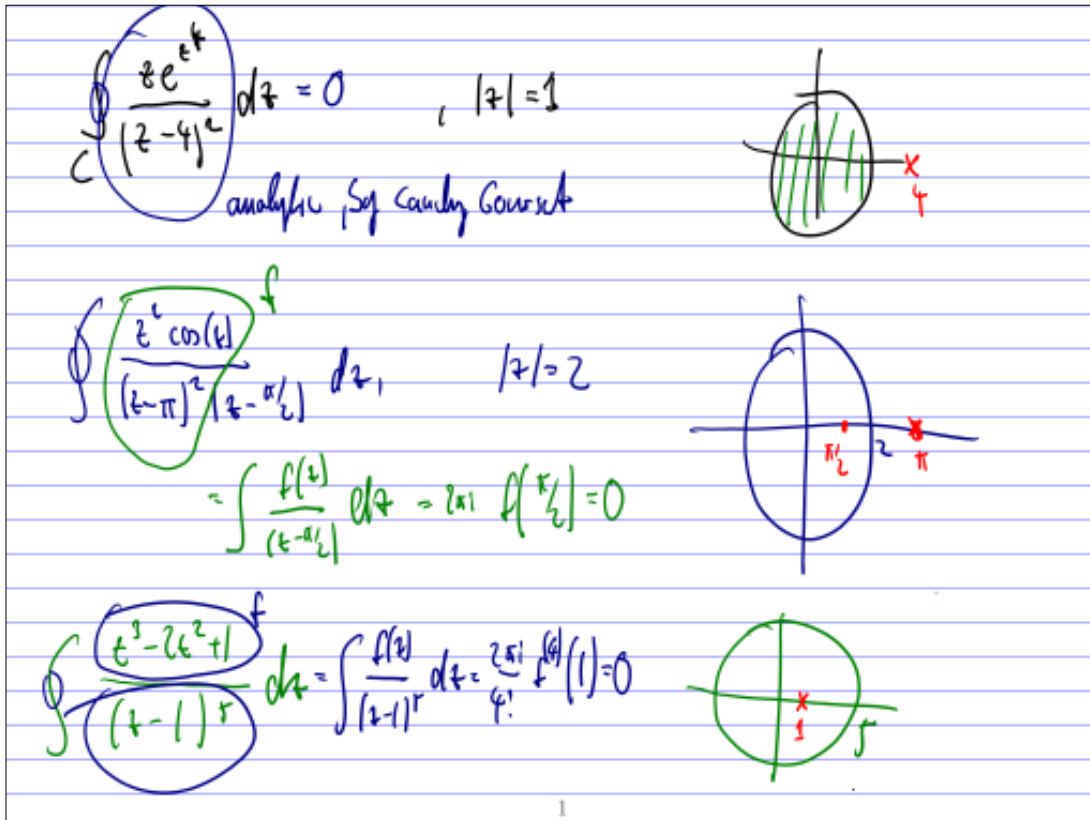 ∮_C z e^{z^4} / (z - 4)^2 dz = 0 , |z| = 1
4
analytic, Cauchy Goursat
f
∮ z^2 cos(z) / (z - π)^2 (z - π/2) dz, |z| = 2
π/2 2 π
= ∫ f(z) / (z - π/2) dz = 2πi f(π/2) = 0
f
∮ z^3 - 2z^2 + 1 / (z - 1)^5 dz = ∫ f(z) / (z - 1)^5 dz = 2πi / 4! f^(4)(1) = 0
1 5
1